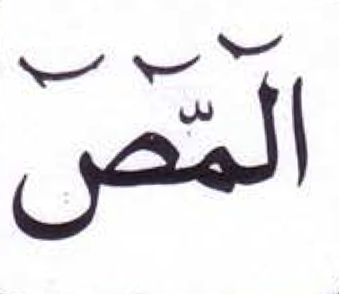 الٓمّٓصٓ